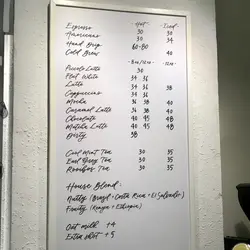 -Hot- -Iced-
Espresso 30
Americano 30 34
Hand Drip 60-80
Cold Brew 40
-8oz/12oz- -12oz-
Piccolo Latte 30
Flat White 34 36
Latte 34 36 38
Cappuccino 34 36
Mocha 36 38 40
Caramel Latte 36 38 40
Chocolate 40 45 48
Matcha Latte 40 45 48
Dirty 38
Mint Tea 30 35
Earl Grey Tea 30 35
Rooibos Tea 30 35
House Blend:
Nutty (Brazil + Costa Rica + El Salvador)
Fruity (Kenya + Ethiopia)
Oat milk +4
Extra shot +5